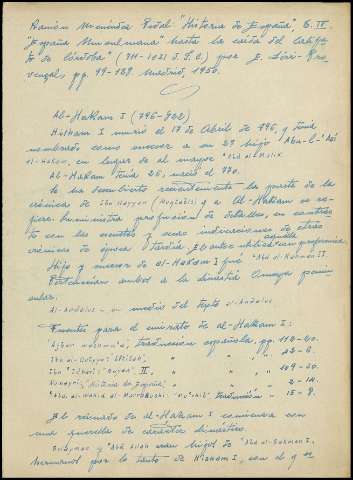 Ramón Menéndez Pidal "Historia de España" t. IV.
"España Musulmana" hasta la caída del Califa-
to de Córdoba" (711-1031 J.C.) por E. Lévi-Pro-
vençal, pp. 99-129. Madrid, 1950.
Al-Hakam I (796-822)
Hisham I murió el 17 de Abril de 796, y tenía
nombrado como sucesor a su 2º hijo Abu-l-'Asi
al-Hakam, en lugar de al mayor 'Abd al-Malik.
Al-Hakam tenía 26, nació el 770.
Se ha descubierto recientemente la parte de la
crónica de Ibn Hayyan (Muqtabis) q a Al-Hakam se re-
fiere. Suministra profusión de detalles, en contras-
te con las escuetas y secas indicaciones de otras
crónicas de época tardía. El autor utiliza con preferencia
aquella
Hijo y sucesor de al-Hakam I fué 'Abd al-Rahman II.
Pertenecían ambos a la dinastía Omeya penin-
sular.
Al-Andalus - en medio del texto al-Andalus
Fuentes para el emirato de al-Hakam I:
"Ajbar machmu'a", traducción española, pp. 112-20.
Ibn al-Qutiyya: Iftitah, " "
Ibn 'Idhari: "Bayan" II, " " 109-30.
Nuwayri, "Historia de España", " "
'Abd al-Wahid al-Marrakushi "Mu'chib" traducción
El reinado de al-Hakam I comienza con
una querella de carácter dinástico.
Sulayman y 'Abd Allah eran hijos de 'Abd al-Rahman I,
hermanos por lo tanto de Hisham I, con el q se